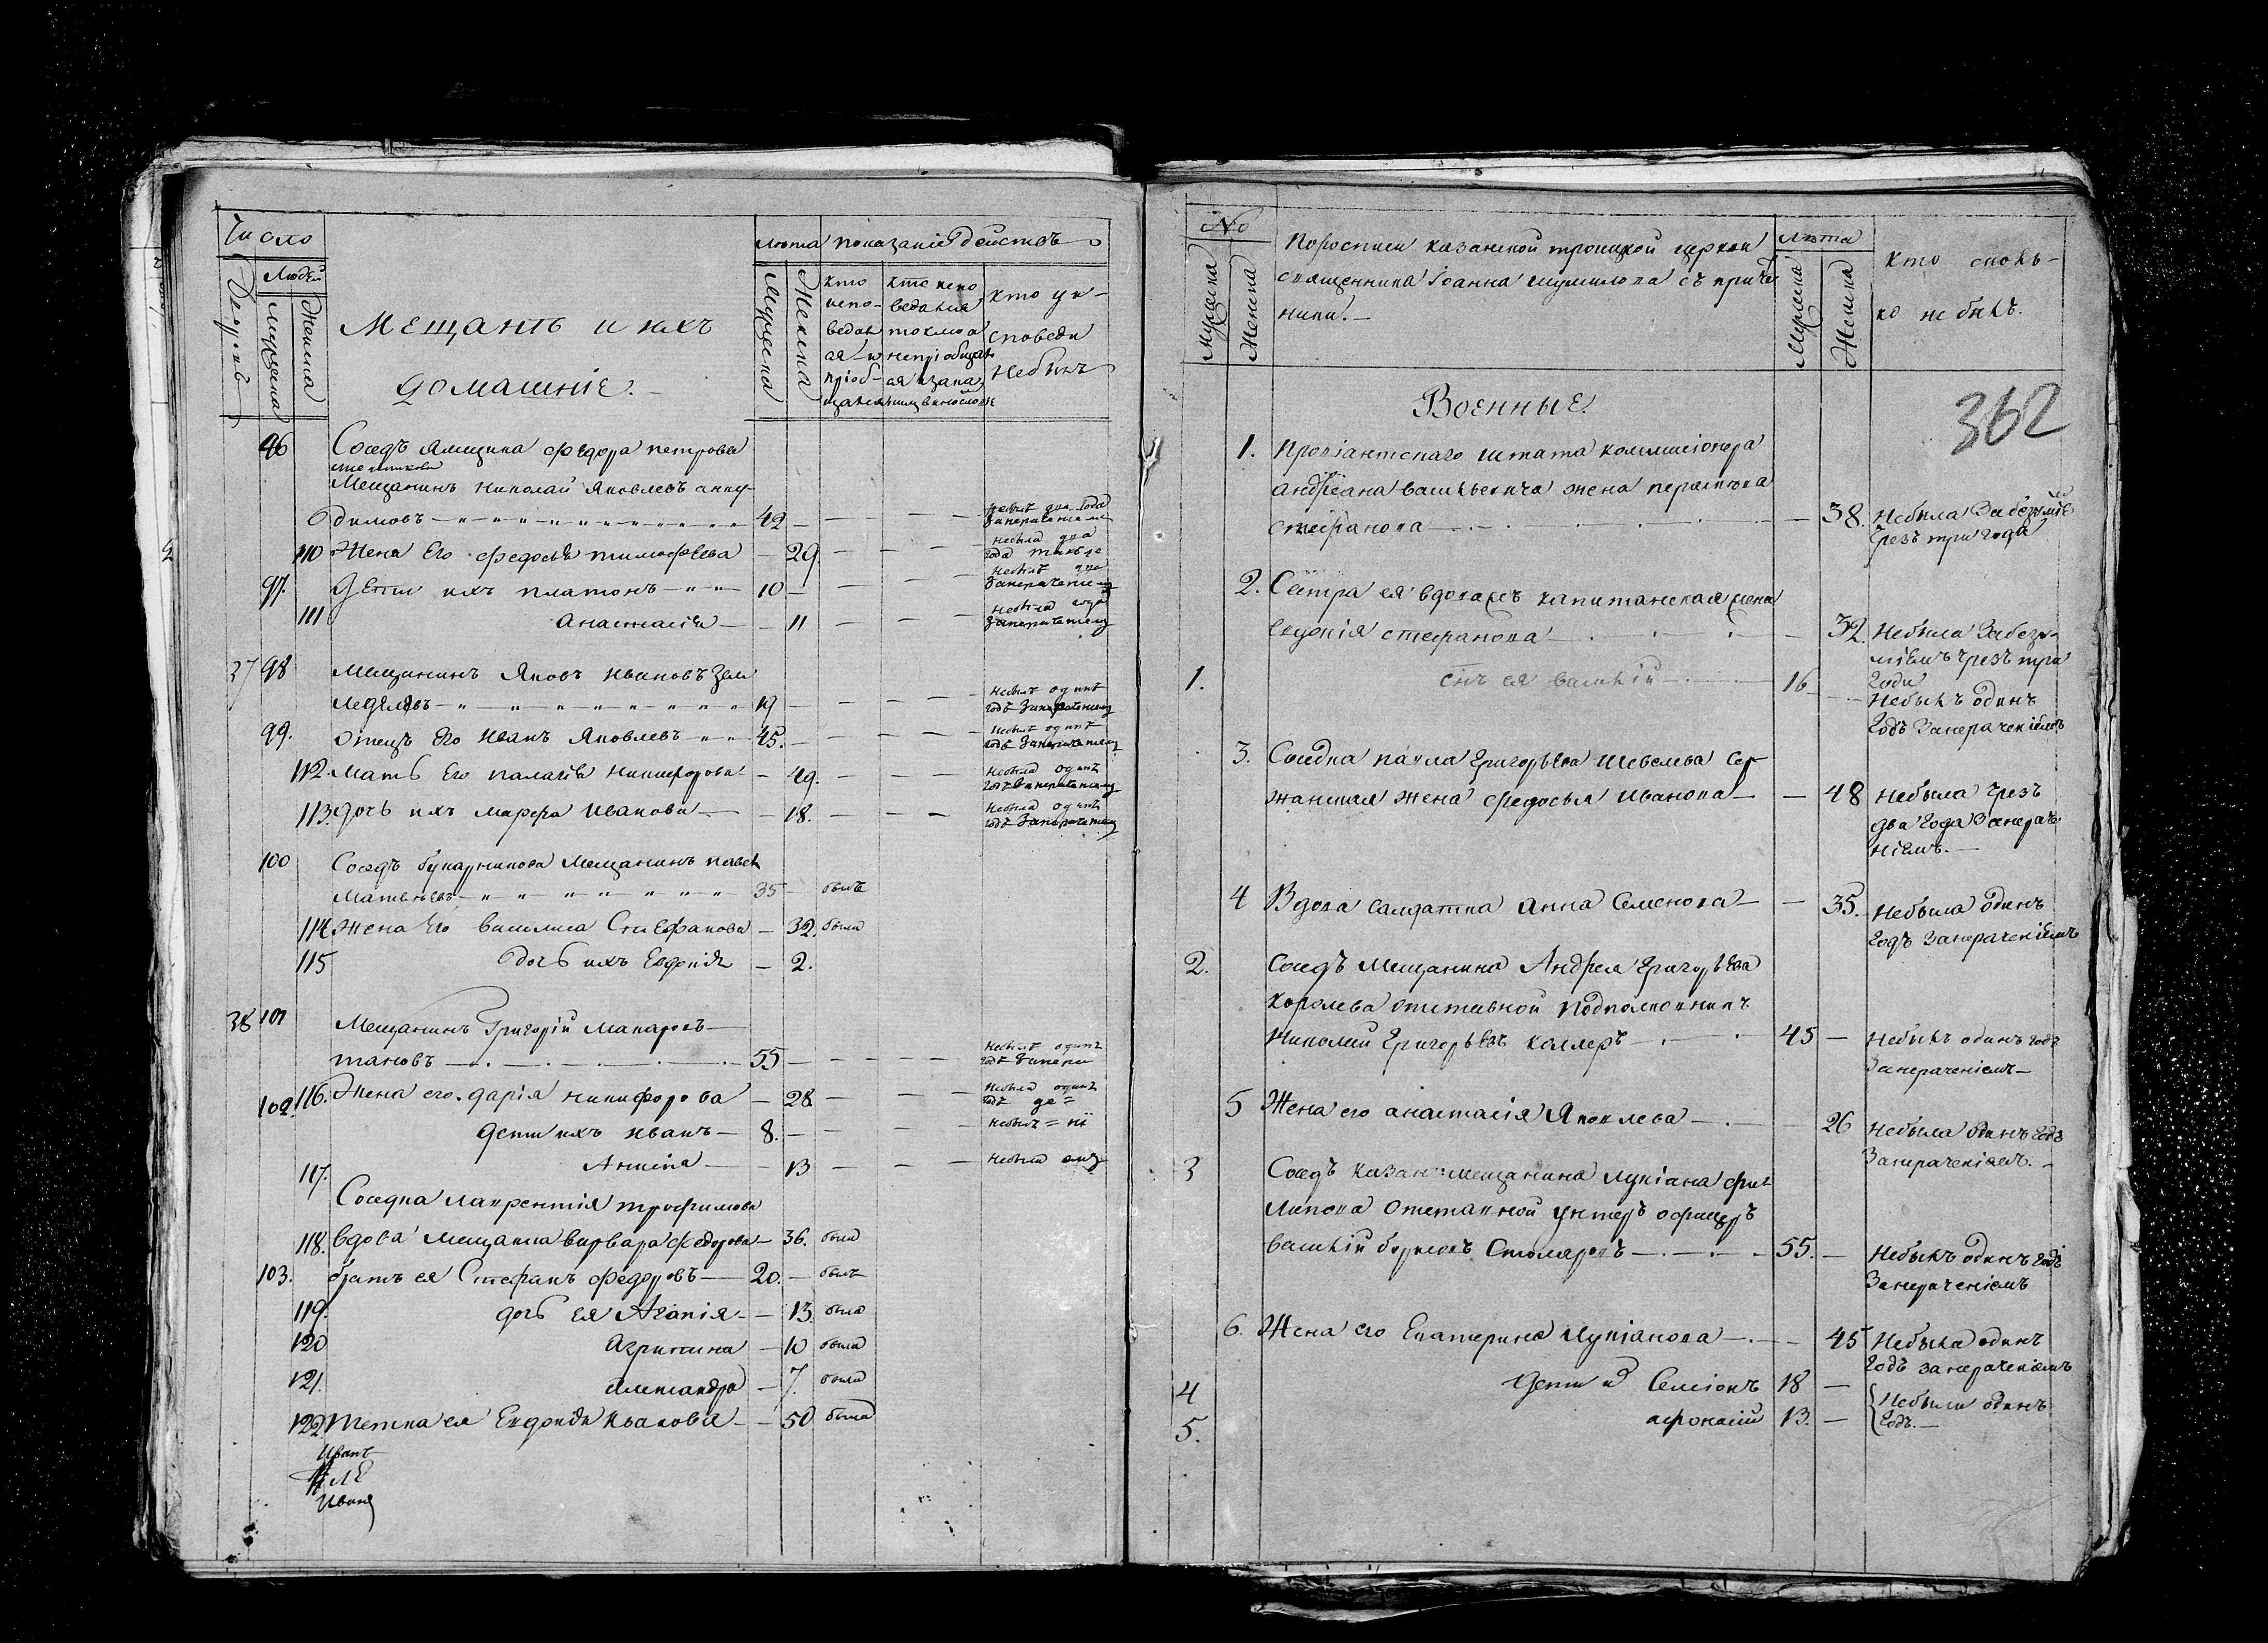 Число
Людей
Дворовъ
Мужеска
Женска
Мещанъ и ихъ
домашніе.
лѣта
показаніе действъ
Мужеска
Женска
кто
испо-
ведал
ся и
пріоб-
щался
кто испо
ведался
токмо а
непріобщал
ся и за ка
кимъ винословіемъ
кто у и-
споведи
небылъ
96 Соседъ ямщика Федора петрова
Мещанинъ николай Яковлевъ
димовъ 42 небылъ два года
занерачениемъ
110 Жена Его федосья тимофѣева 29. небыла два
года
97. Дети ихъ платонъ 10 небылъ два
занерачением
111 Анастасія 11 небыла года
занерачением
37 98 Мещанинъ Яковъ Ивановъ
19 небылъ одинъ
годъ занерачением
99. Отецъ Его Иванъ Яковлевъ 45. небылъ одинъ
годъ занерачением
112. Мать Его палагія никифорова 49. небыла одинъ
годъ занерачением
113. дочь ихъ марфа Иванова 18. небыла одинъ
годъ занерачением
100 Соседъ Мещанинъ павел
Матвѣевъ 35 былъ
114 Жена Его василиса Стефанова 32. была
115 дочь ихъ Евдокія 2.
38 101 Мещанинъ Григорій Макаровъ
55 небылъ одинъ
годъ
116. Жена его дарія никифорова 28 небыла одинъ
годъ
102. дети ихъ Иванъ 8. небылъ
117. 13 небыла
Соседка лаврентія трофимова
118. вдова мещанка варвара федорова 36. была
103. братъ ея Стефанъ федоровъ 20. былъ
119. дочь ея Агапія 13 была
120 Агрипина 10 была
121. Александра 7. была
122 тетка ея Евдокія Иванова 50 была
Иванъ
№
Мужеска
Женска
По росписи казанской троицкой церкви
священника Іоанна съ приче
ники.
лѣта
Мужеска
Женска
кто сколь-
ко не былъ.
362
Военные.
1. Провіантскаго штата коммисіонера
андреана васильевича жена
стефанова 38. Небыла
Чрезъ три года
2. Сестра ея вдова капитанская жена
евдокія стефанова 32. Небыла
чрезъ три
года
1. сынъ ея василій 16 Небылъ одинъ
годъ занерачениемъ
3. Соседка павла Григорьева Шевелева сер-
жанская жена федосья Иванова 48 небыла чрезъ
два года занераче
ніемъ.
4 Вдова салдатка анна Семенова 35. небыла одинъ
годъ занераченіемъ
2. Соседъ Мещанина Андрея Григорьева
королева отставной подполковникъ
Николай Григорьевъ 45 небылъ одинъ годъ
Занераченіемъ
5 Жена его анастасія Яковлева 26 небыла одинъ годъ
Занераченіемъ.
3 Соседъ казан мещанина лукіана фи-
липова отставной унтеръ офицеръ
василій борисовъ Столяровъ 55. Небылъ одинъ годъ
Занераченіемъ
6. Жена его Екатерина лукіанова 45 Небыла одинъ
годъ занераченіемъ
4 дети Семіонъ 18 Небыли одинъ
5. афонасій 13. годъ.